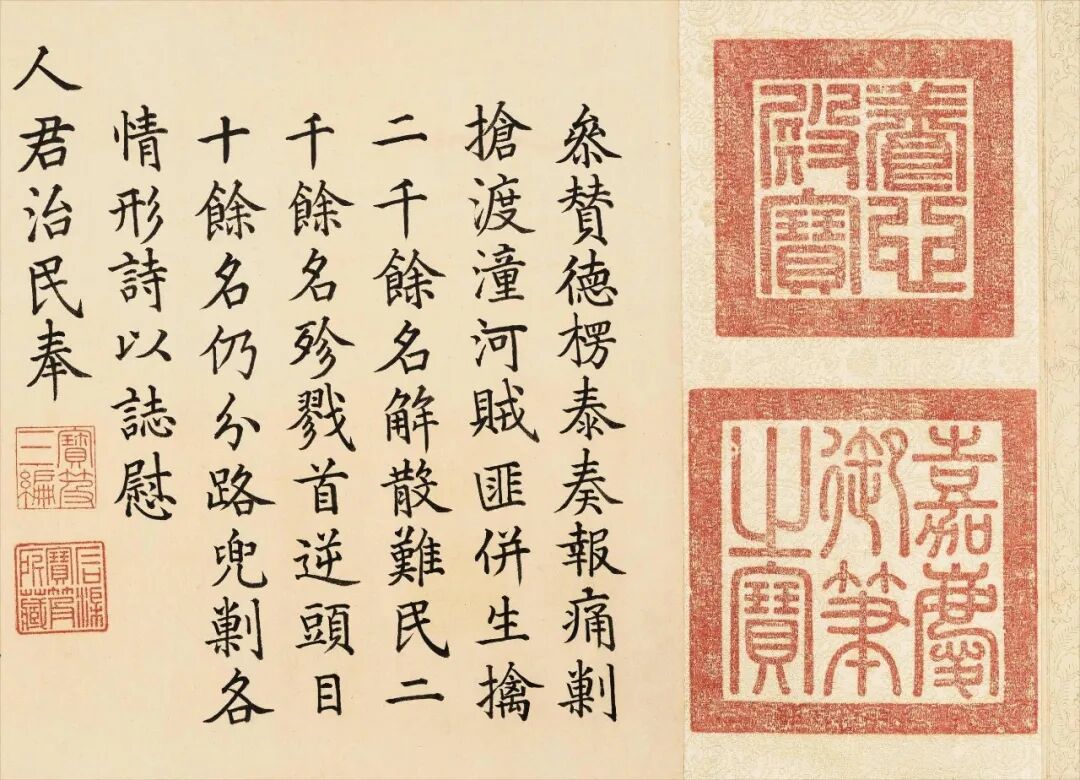 養心
殿寶
嘉慶
御筆
之寶
叅贊德楞泰奏報痛剿
搶渡潼河賊匪併生擒
二千餘名解散難民二
千餘名殄戮首逆頭目
十餘名仍分路兜剿各
情形詩以誌慰
人君治民奉
寶笈
三編
石渠
寶笈
所藏